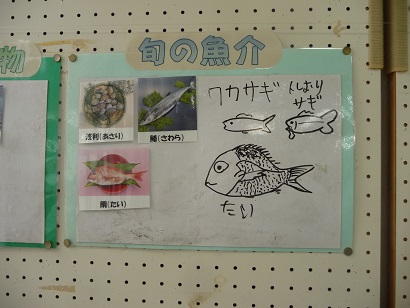 物
旬の魚介
浅利(あさり)
鰆(さわら)
鯛(たい)
ワカサギ
サギ
たい